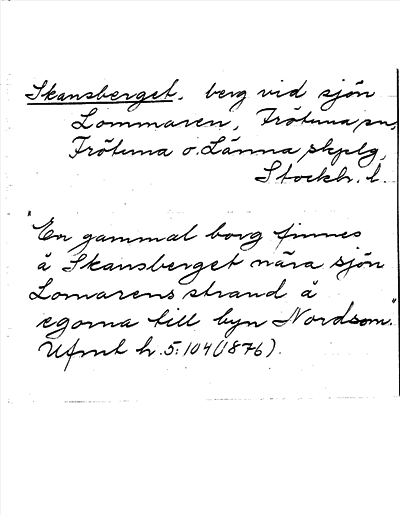 Skansberget, berg vid sjön
Lommaren, Frötuna sn,
Frötuna o. Länna skplg,
Stockh. l.
"En gammal borg finnes
å Skansberget nära sjön
Lomarens strand å
egorna till byn Nordsom."
Ufmt h. 5: 104 (1876).